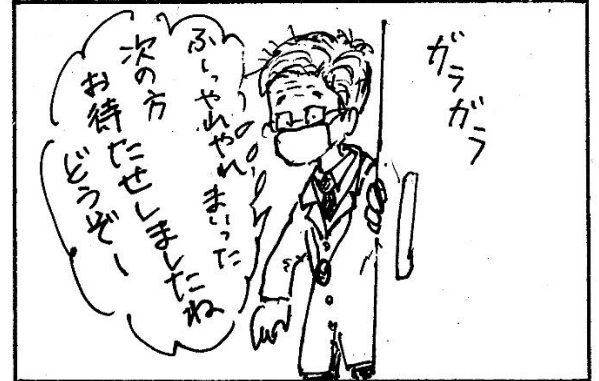 ガラガラ
ふーっやれやれまいった
次の方
お待たせしましたね
どうぞー